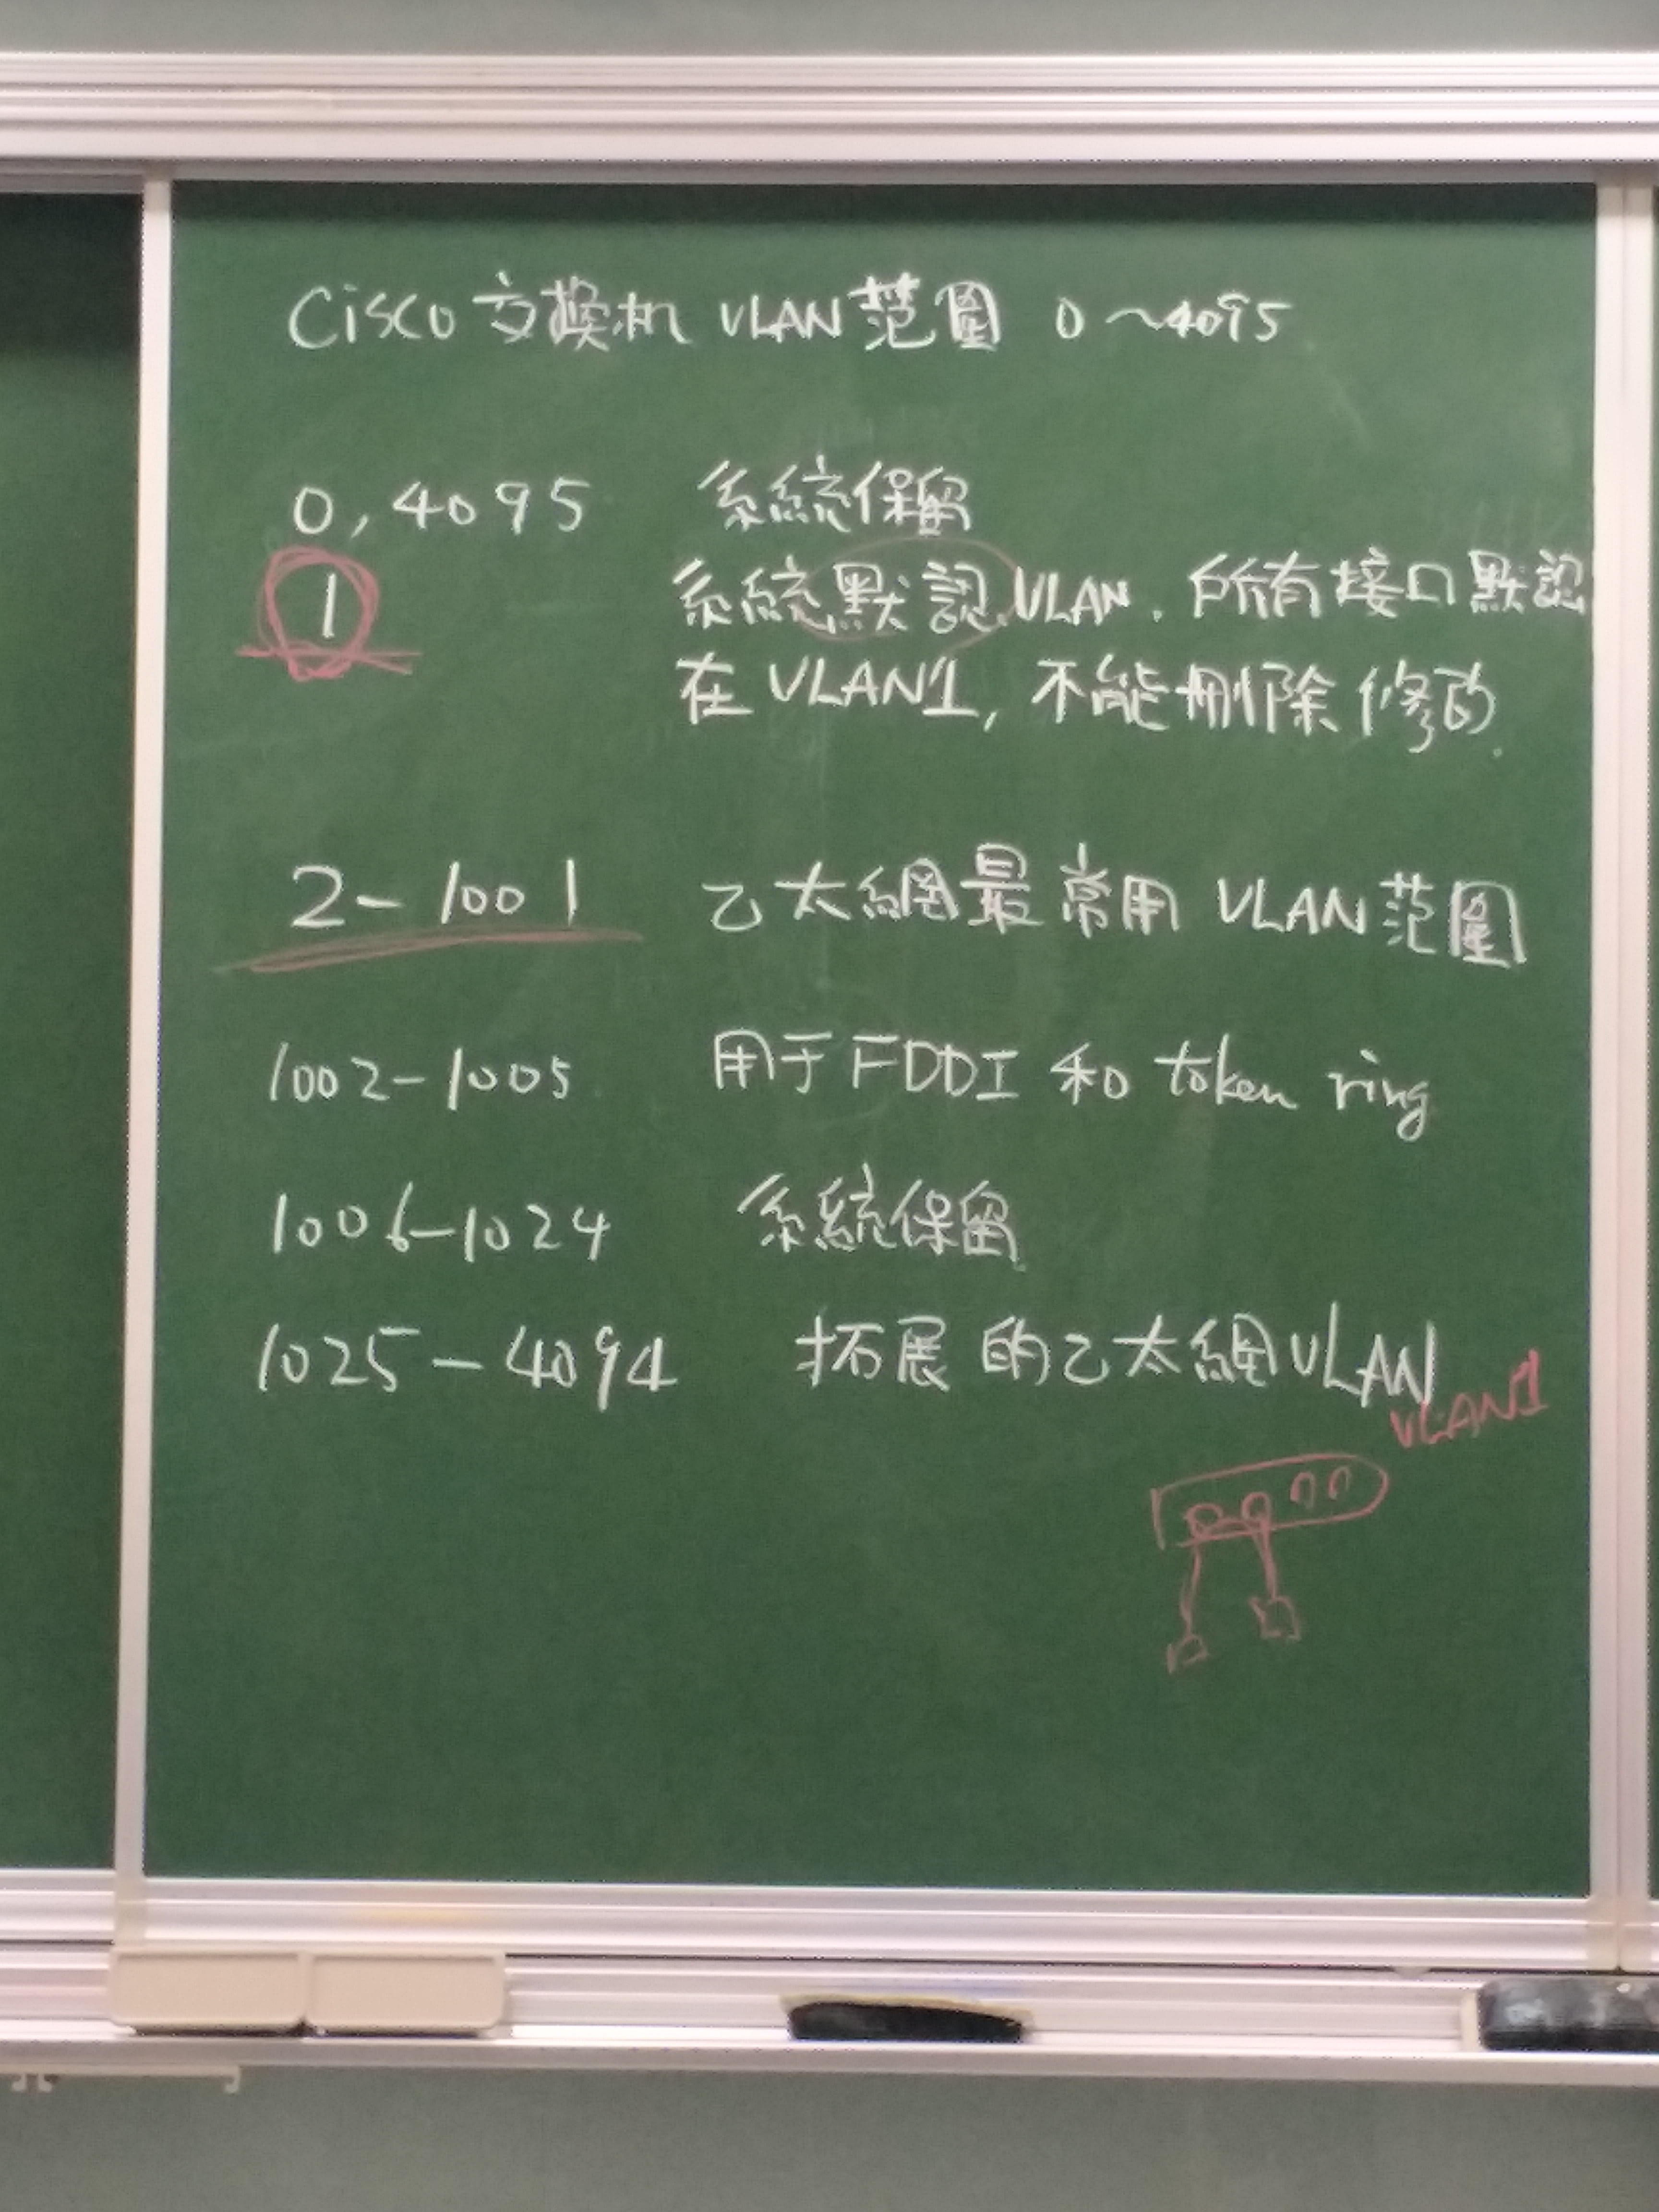 Cisco 交換机 VLAN 范圍 0~4095
0, 4095 系統保留
1 系統默認VLAN. 所有接口默認
在VLAN1, 不能刪除修改.
2-1001 乙太網最常用 VLAN范圍
1002-1005 用于FDDI 和 token ring
1006-1024 系統保留
1025-4094 拓展的乙太網VLAN
VLAN1